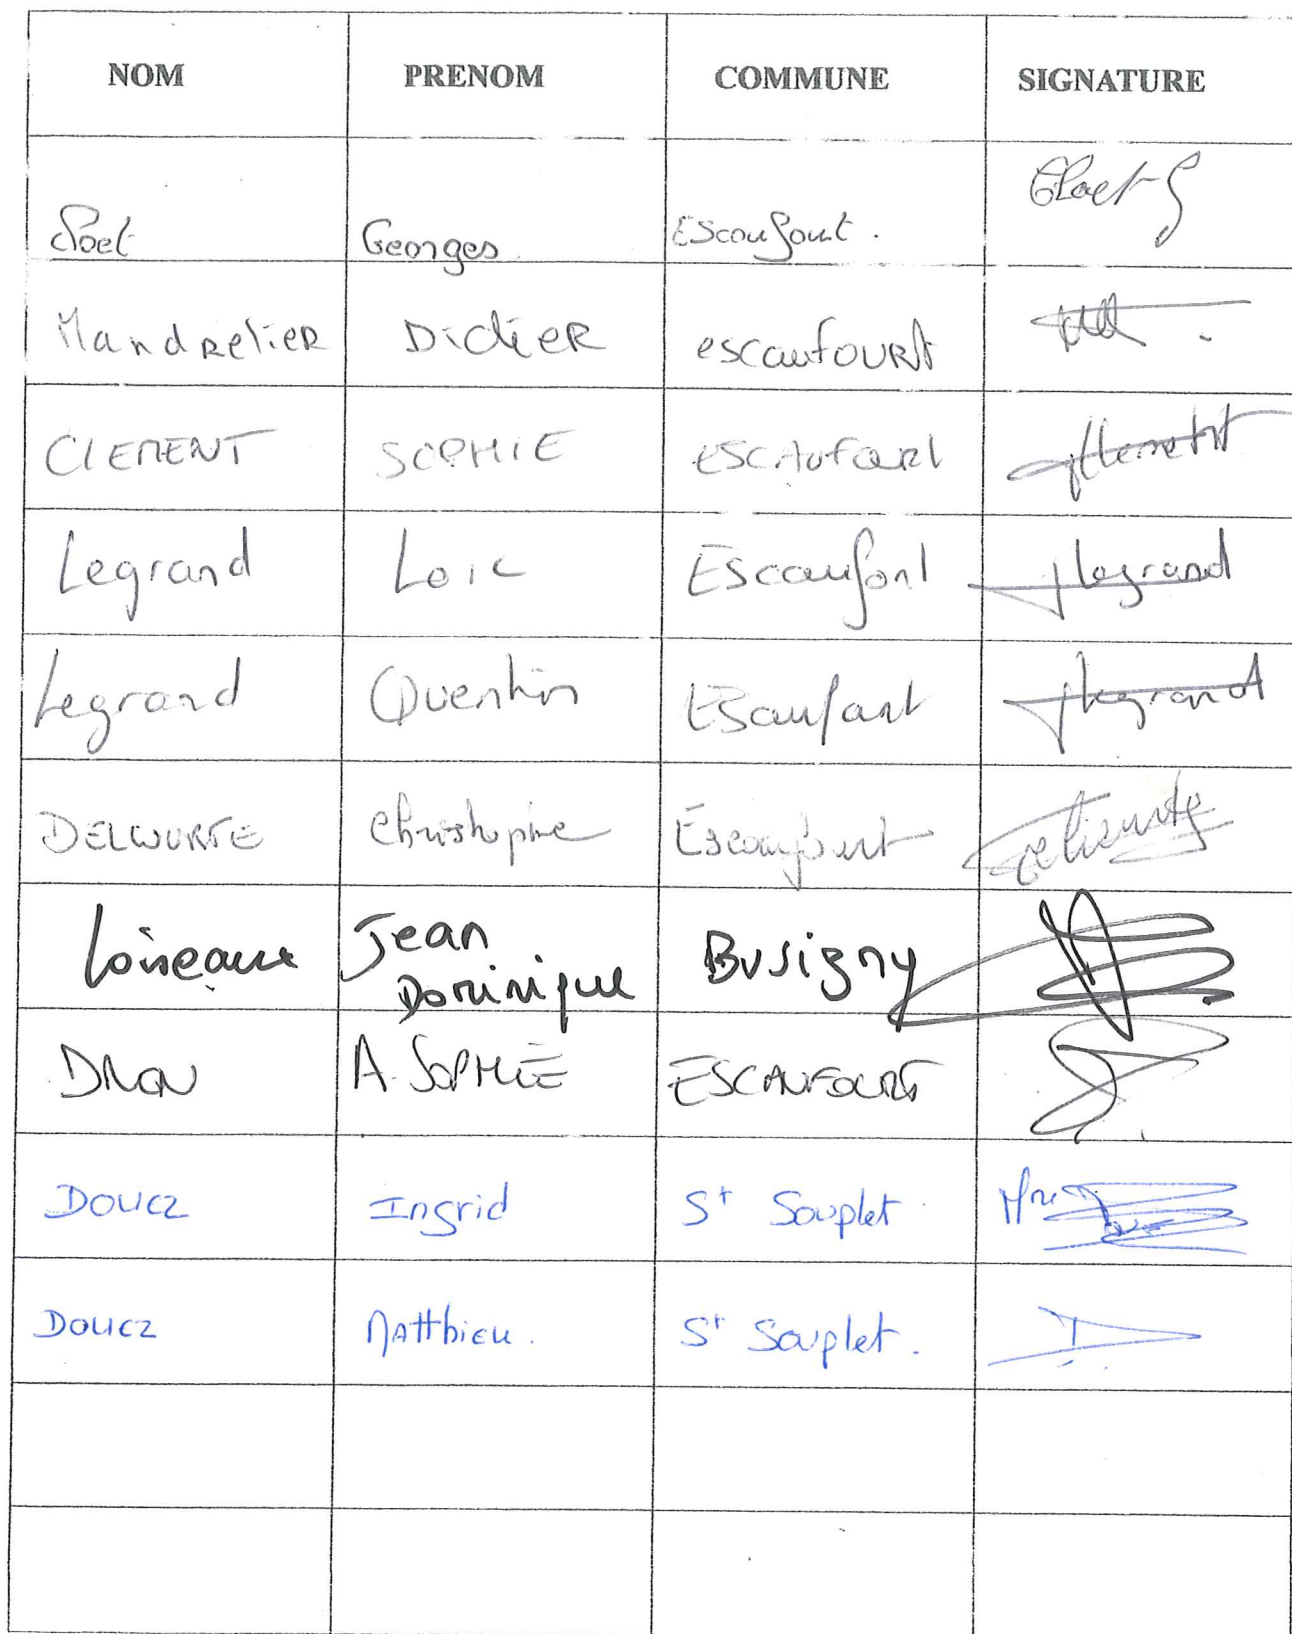 NOM PRENOM COMMUNE SIGNATURE
Georges Escaufourt.
Mandrelier Didier escaufourt
CLEMENT SOPHIE ESCAUFOURT Clement
Legrand Loic Escaufort Legrand
Legrand Quentin Escaufart Legrand
DELWURTE Christophe Escaufourt
Loiseaux Jean Dominique Busigny
DRON A. SOPHIE ESCAUFOURT
Doucz Ingrid St Souplet Mme
Doucz Matthieu. St Souplet.